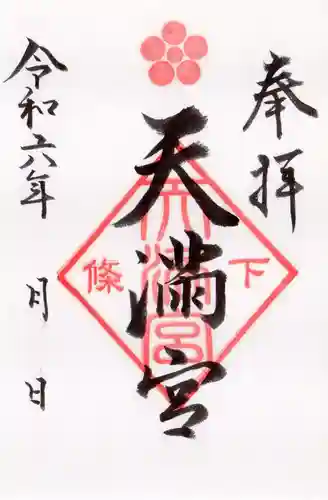 奉拝
天満宮
下條
天満宮
令和六年
月
日